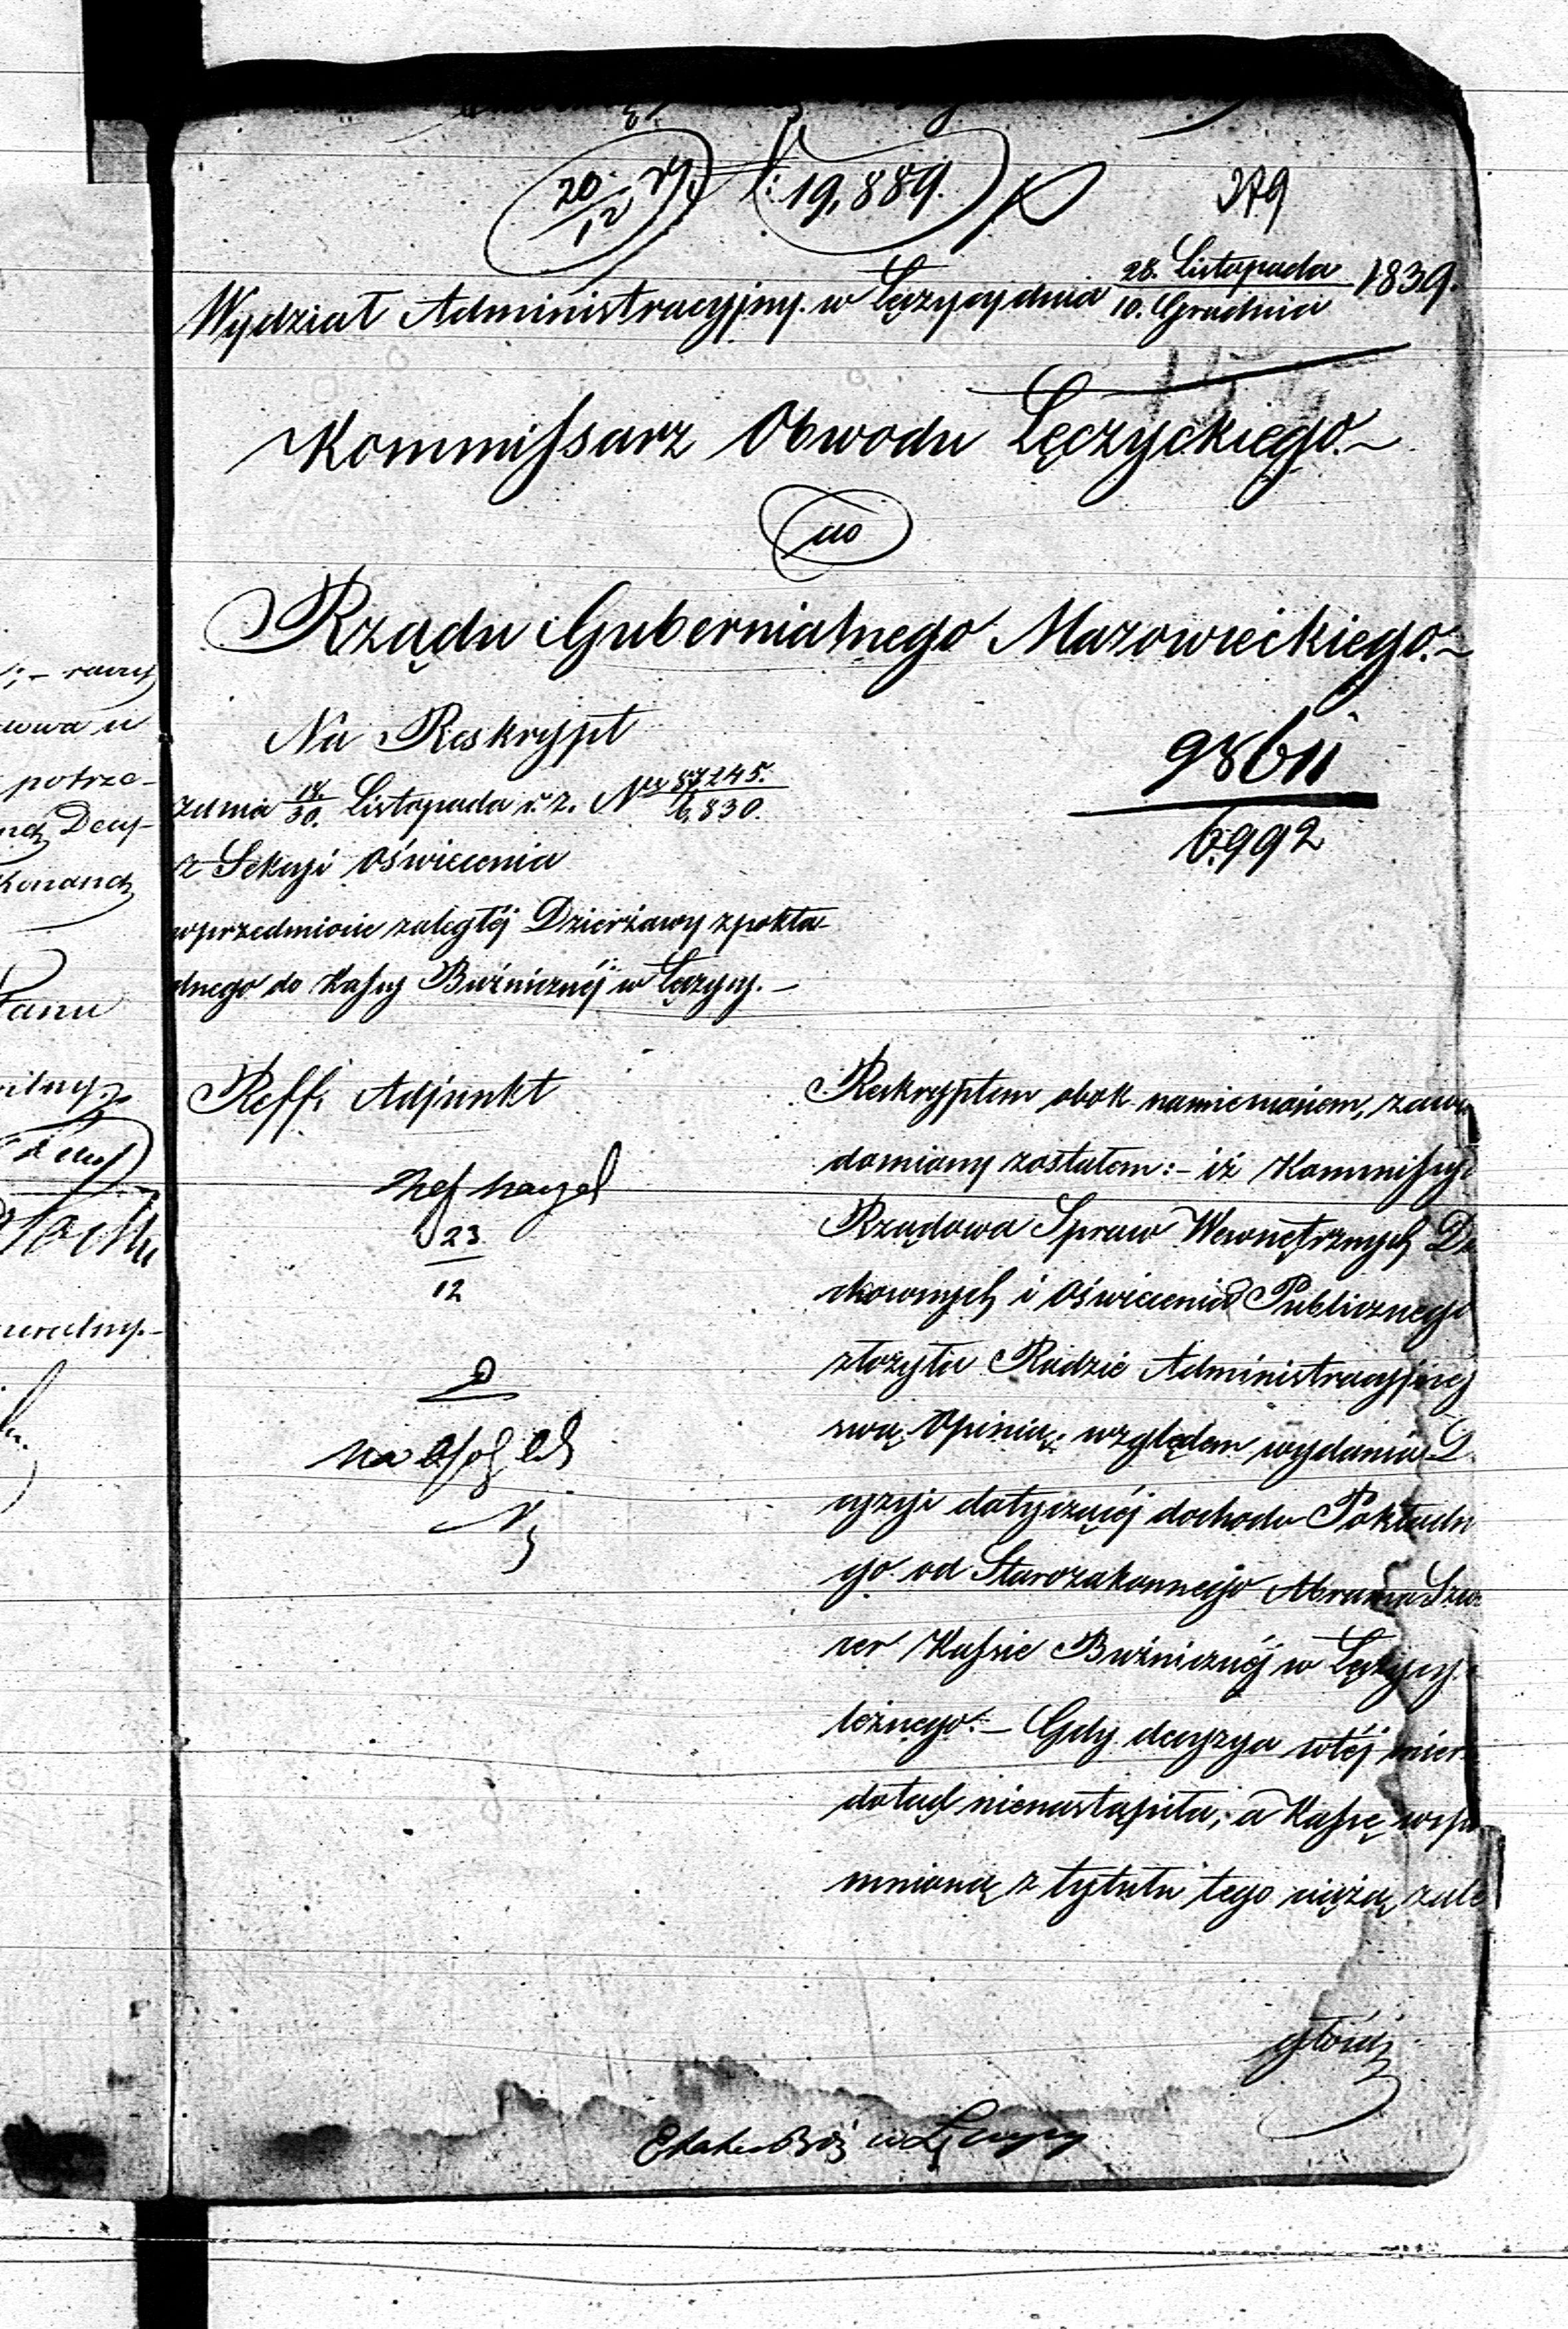 20/12 19,889. 379
Wydział Administracyjny. w Łęczycy dnia 28. Listopada / 10. Grudnia 1839.
Kommissarz Obwodu Łęczyckiego.~
do
Rządu Gubernialnego Mazowieckiego.~
Na Reskrypt
z dnia 18/30. Listopada r. z. Nr 87,245. / 6,830.
z Sekcyi Oświecenia
w przedmiocie zaległéj Dzierżawy z pokła-
dnego do Kassy Bużnicznéj w Łęczycy. –
98611
6992
Reff. Adjunkt
23
12
Reskryptem obok namienionem, zawia
domiony zostałem:– iż Kommissyi
Rządowa Spraw Wewnętrznych Du
chownych i Oświecenia Publicznego
złożyła Radzie Administracyjnéj
swą Opinią, względem wydania D
cyzyi dotyczącéj dochodu Pokładn
go od Starozakonnego Abrama Szw
cer Kassie Bużniczéj w Łęczycy
leżnego.– Gdy decyzya w téj mier
dotąd nienastąpiła, a Kassę wspo
mnioną z tytułu tego ciążą zale
głości
w Łęczycy
ną Decy-
potrze-
Panu